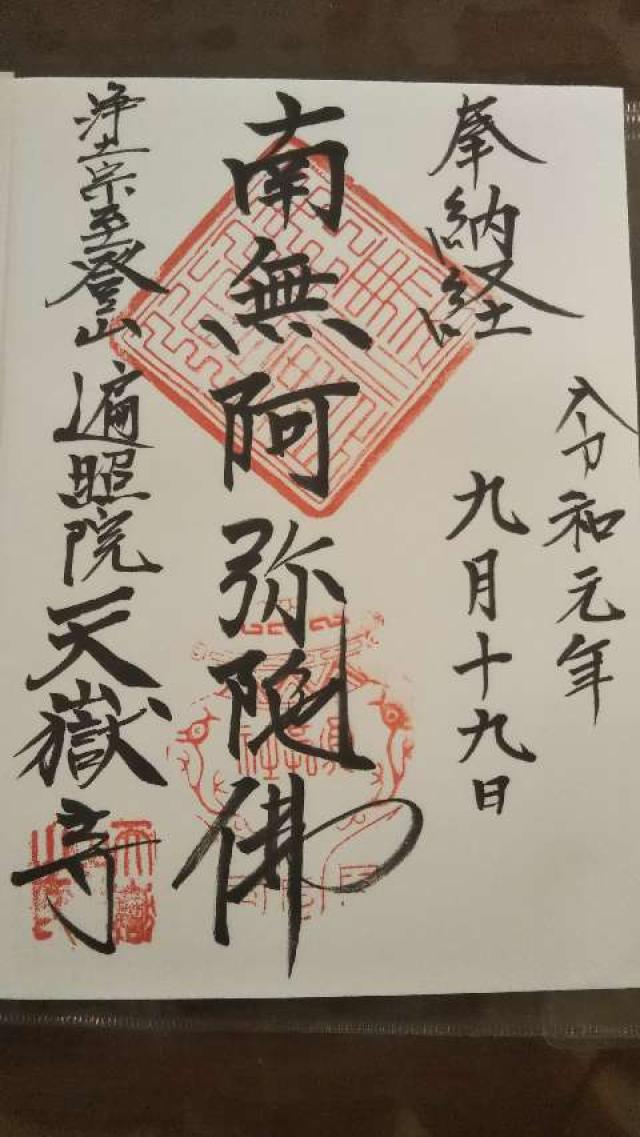 奉納経
令和元年
九月十九日
南無阿弥陀佛
浄土宗至登山
遍照院
天嶽寺